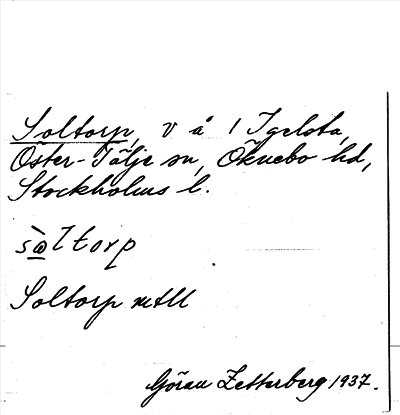 Soltorp, v å 1 Igelsta,
Öster-Tälje sn, Öknebo hd,
Stockholms l.
sò̲ltorp
Soltorp mtll
Göran Zetterberg 1937.